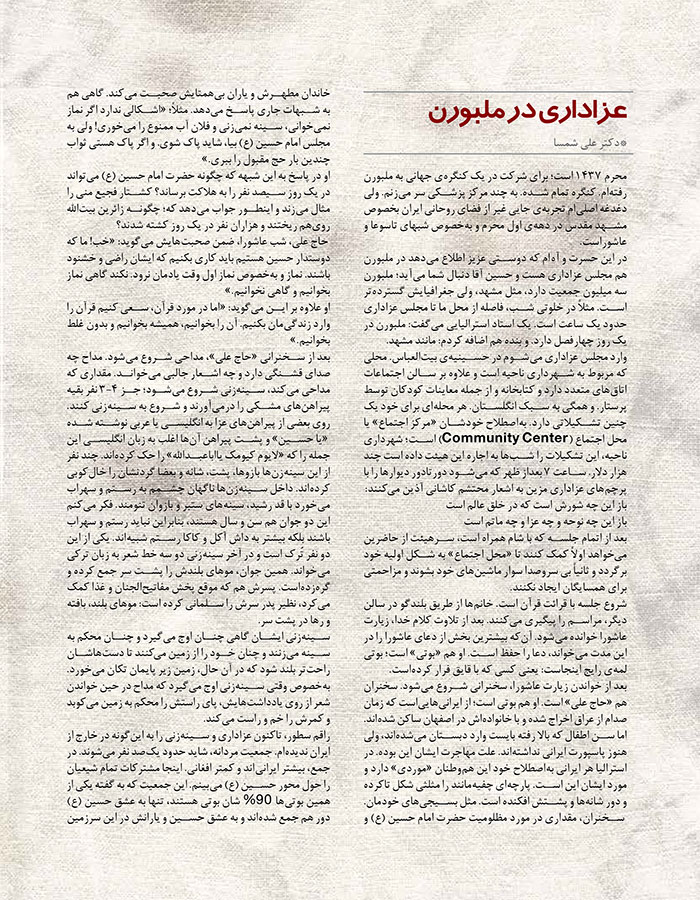 عزاداری در ملبورن
*دکتر علی شمسا
محرم ۱۴۳۷ است؛ برای شرکت در یک کنگره‌ی جهانی به ملبورن
رفته‌ام. کنگره تمام شده. به چند مرکز پزشکی سر می‌زنم. ولی
دغدغه اصلی‌ام تجربه‌ی جایی غیر از فضای روحانی ایران بخصوص
مشهد مقدس در دهه‌ی اول محرم و به‌خصوص شبهای تاسوعا و
عاشورا‌ست.
در این حسرت و آه‌ام که دوستی عزیز اطلاع می‌دهد در ملبورن
هم مجلس عزاداری هست و حسین آقا دنبال شما می‌آید؛ ملبورن
سه میلیون جمعیت دارد، مثل مشهد، ولی جغرافیایش گسترده‌تر
است. مثلاً در خلوتی شب، فاصله از محل ما تا مجلس عزاداری
حدود یک ساعت است. یک استاد استرالیایی می‌گفت: ملبورن در
یک روز چهار‌فصل دارد. و بنده هم اضافه کردم: مانند مشهد.
وارد مجلس عزاداری می‌شوم در حسینیه‌ی بیت‌العباس. محلی
که مربوط به شهرداری ناحیه است و علاوه بر سالن اجتماعات
اتاق‌های متعدد دارد و کتابخانه و از جمله معاینات کودکان توسط
پرستار. و همگی به سبک انگلستان. هر محله‌ای برای خود یک
چنین تشکیلاتی دارد. به‌اصطلاح خودشان «مرکز اجتماع» یا
محل اجتماع (Community Center) است؛ شهرداری
ناحیه، این تشکیلات را شب‌ها به اجاره این هیئت داده است چند
هزار دلار. ساعت ۷ بعداز ظهر که می‌شود دور تادور دیوارها را با
پرچم‌های عزاداری مزین به اشعار محتشم کاشانی آذین می‌کنند:
باز این چه شورش است که در خلق عالم است
باز این چه نوحه و چه عزا و چه ماتم است
بعد از اتمام جلسه که با شام همراه است، سرهیئت از حاضرین
می‌خواهد اولاً کمک کنند تا «محل اجتماع» به شکل اولیه خود
برگردد و ثانیاً بی سروصدا سوار ماشین‌های خود بشوند و مزاحمتی
برای همسایگان ایجاد نکنند.
شروع جلسه با قرائت قرآن است. خانم‌ها از طریق بلندگو در سالن
دیگر، مراسم را پیگیری می‌کنند. بعد از تلاوت کلام خدا، زیارت
عاشورا خوانده می‌شود. آن که بیشترین بخش از دعای عاشورا را در
این مدت می‌خواند، دعا را حفظ است. او هم «بوتی» است؛ بوتی
لمه‌ی رایج اینجاست؛ یعنی کسی که با قایق فرار کرده‌است.
بعد از خواندن زیارت عاشورا، سخنرانی شروع می‌شود. سخنران
هم «حاج علی» است. او هم بوتی است؛ از ایرانی‌هایی است که زمان
صدام از عراق اخراج شده و با خانواده‌اش در اصفهان ساکن شده‌اند.
اما سن اطفال که بالا رفته بایست وارد دبستان می‌شده‌اند، ولی
هنوز پاسپورت ایرانی نداشته‌اند. علت مهاجرت ایشان این بوده. در
استرالیا هر ایرانی به‌اصطلاح خود این هم‌وطنان «موردی» دارد و
مورد ایشان این است. پارچه‌ای چفیه‌مانند را مثلثی شکل تاکرده
و دور شانه‌ها و پشتش افکنده است. مثل بسیجی‌های خودمان.
سخنران، مقداری در مورد مظلومیت حضرت امام حسین (ع) و
خاندان مطهرش و یاران بی‌همتایش صحبت می‌کند. گاهی هم
به شبهات جاری پاسخ می‌دهد. مثلاً: «اشکالی ندارد اگر نماز
نمی‌خوانی، سینه نمی‌زنی و فلان آب ممنوع را می‌خوری! ولی به
مجلس امام حسین (ع) بیا، شاید پاک شوی. و اگر پاک هستی ثواب
چندین بار حج مقبول را ببری.»
او در پاسخ به این شبهه که چگونه حضرت امام حسین (ع) می‌تواند
در یک روز سیصد نفر را به هلاکت برساند؟ کشتار فجیع منی را
مثال می‌زند و اینطور جواب می‌دهد که: چگونه زائرین بیت‌الله
روی‌هم ریختند و هزاران نفر در یک روز کشته شدند؟
حاج علی، شب عاشورا، ضمن صحبت‌هایش می‌گوید: «خب! ما که
دوستدار حسین هستیم باید کاری بکنیم که ایشان راضی و خشنود
باشند. نماز و به‌خصوص نماز اول وقت یادمان نرود. نکند گاهی نماز
بخوانیم و گاهی نخوانیم.»
او علاوه بر این می‌گوید: «اما در مورد قرآن، سعی کنیم قرآن را
وارد زندگی‌مان بکنیم. آن را بخوانیم، همیشه بخوانیم و بدون غلط
بخوانیم.»
بعد از سخنرانی «حاج علی»، مداحی شروع می‌شود. مداح چه
صدای قشنگی دارد و چه اشعار جالبی می‌خواند. مقداری که
مداحی می‌کند، سینه‌زنی شروع می‌شود؛ جز ۴-۳ نفر بقیه
پیراهن‌های مشکی را درمی‌آورند و شروع به سینه‌زنی کنند.
روی بعضی از پیراهن‌های عزا به انگلیسی یا عربی نوشته شده
«یا حسین» و پشت پیراهن آن‌ها اغلب به زبان انگلیسی این
جمله را که «لایوم کیومک یااباعبدالله» را حک کرده‌اند. چند نفر
از این سینه‌زن‌ها بازوها، پشت، شانه و بعضا گردنشان را خال‌کوبی
کرده‌اند. داخل سینه‌زن‌ها ناگهان چشمم به رستم و سهراب
می‌خورد با قد رشید، سینه‌های ستبر و بازوان تنومند. فکر می‌کنم
این دو جوان هم سن و سال هستند، بنابراین نباید رستم و سهراب
باشند بلکه بیشتر به داش آکل و کاکا رستم شبیه‌اند. یکی از این
دو نفر تُرک است و در آخر سینه‌زنی دو سه خط شعر به زبان ترکی
می‌خواند. همین جوان، موهای بلندش را پشت سر جمع کرده و
گره‌زده‌است. پسرش هم که موقع پخش مفاتیح‌الجنان و غذا کمک
می‌کرد، نظیر پدر سرش را سلمانی کرده است: موهای بلند، بافته
و رها در پشت سر.
سینه‌زنی ایشان گاهی چنان اوج می‌گیرد و چنان محکم به
سینه می‌زنند و چنان خود را از زمین می‌کنند تا دست‌هاشان
راحت‌تر بلند شود که در آن حال، زمین زیر پایمان تکان می‌خورد.
به‌خصوص وقتی سینه‌زنی اوج می‌گیرد که مداح در حین خواندن
شعر از روی یادداشت‌هایش، پای راستش را محکم به زمین می‌کوبد
و کمرش را خم و راست می‌کند.
راقم سطور، تاکنون عزاداری و سینه‌زنی را به این‌گونه در خارج از
ایران ندیده‌ام. جمعیت مردانه، شاید حدود یک‌صد نفر می‌شوند. در
جمع، بیشتر ایرانی‌اند و کمتر افغانی. اینجا مشترکات تمام شیعیان
را حول محور حسین (ع) می‌بینم. این جمعیت که به گفته یکی از
همین بوتی‌ها 90% شان بوتی هستند، تنها به عشق حسین (ع)
دور هم جمع شده‌اند و به عشق حسین و یارانش در این سرزمین